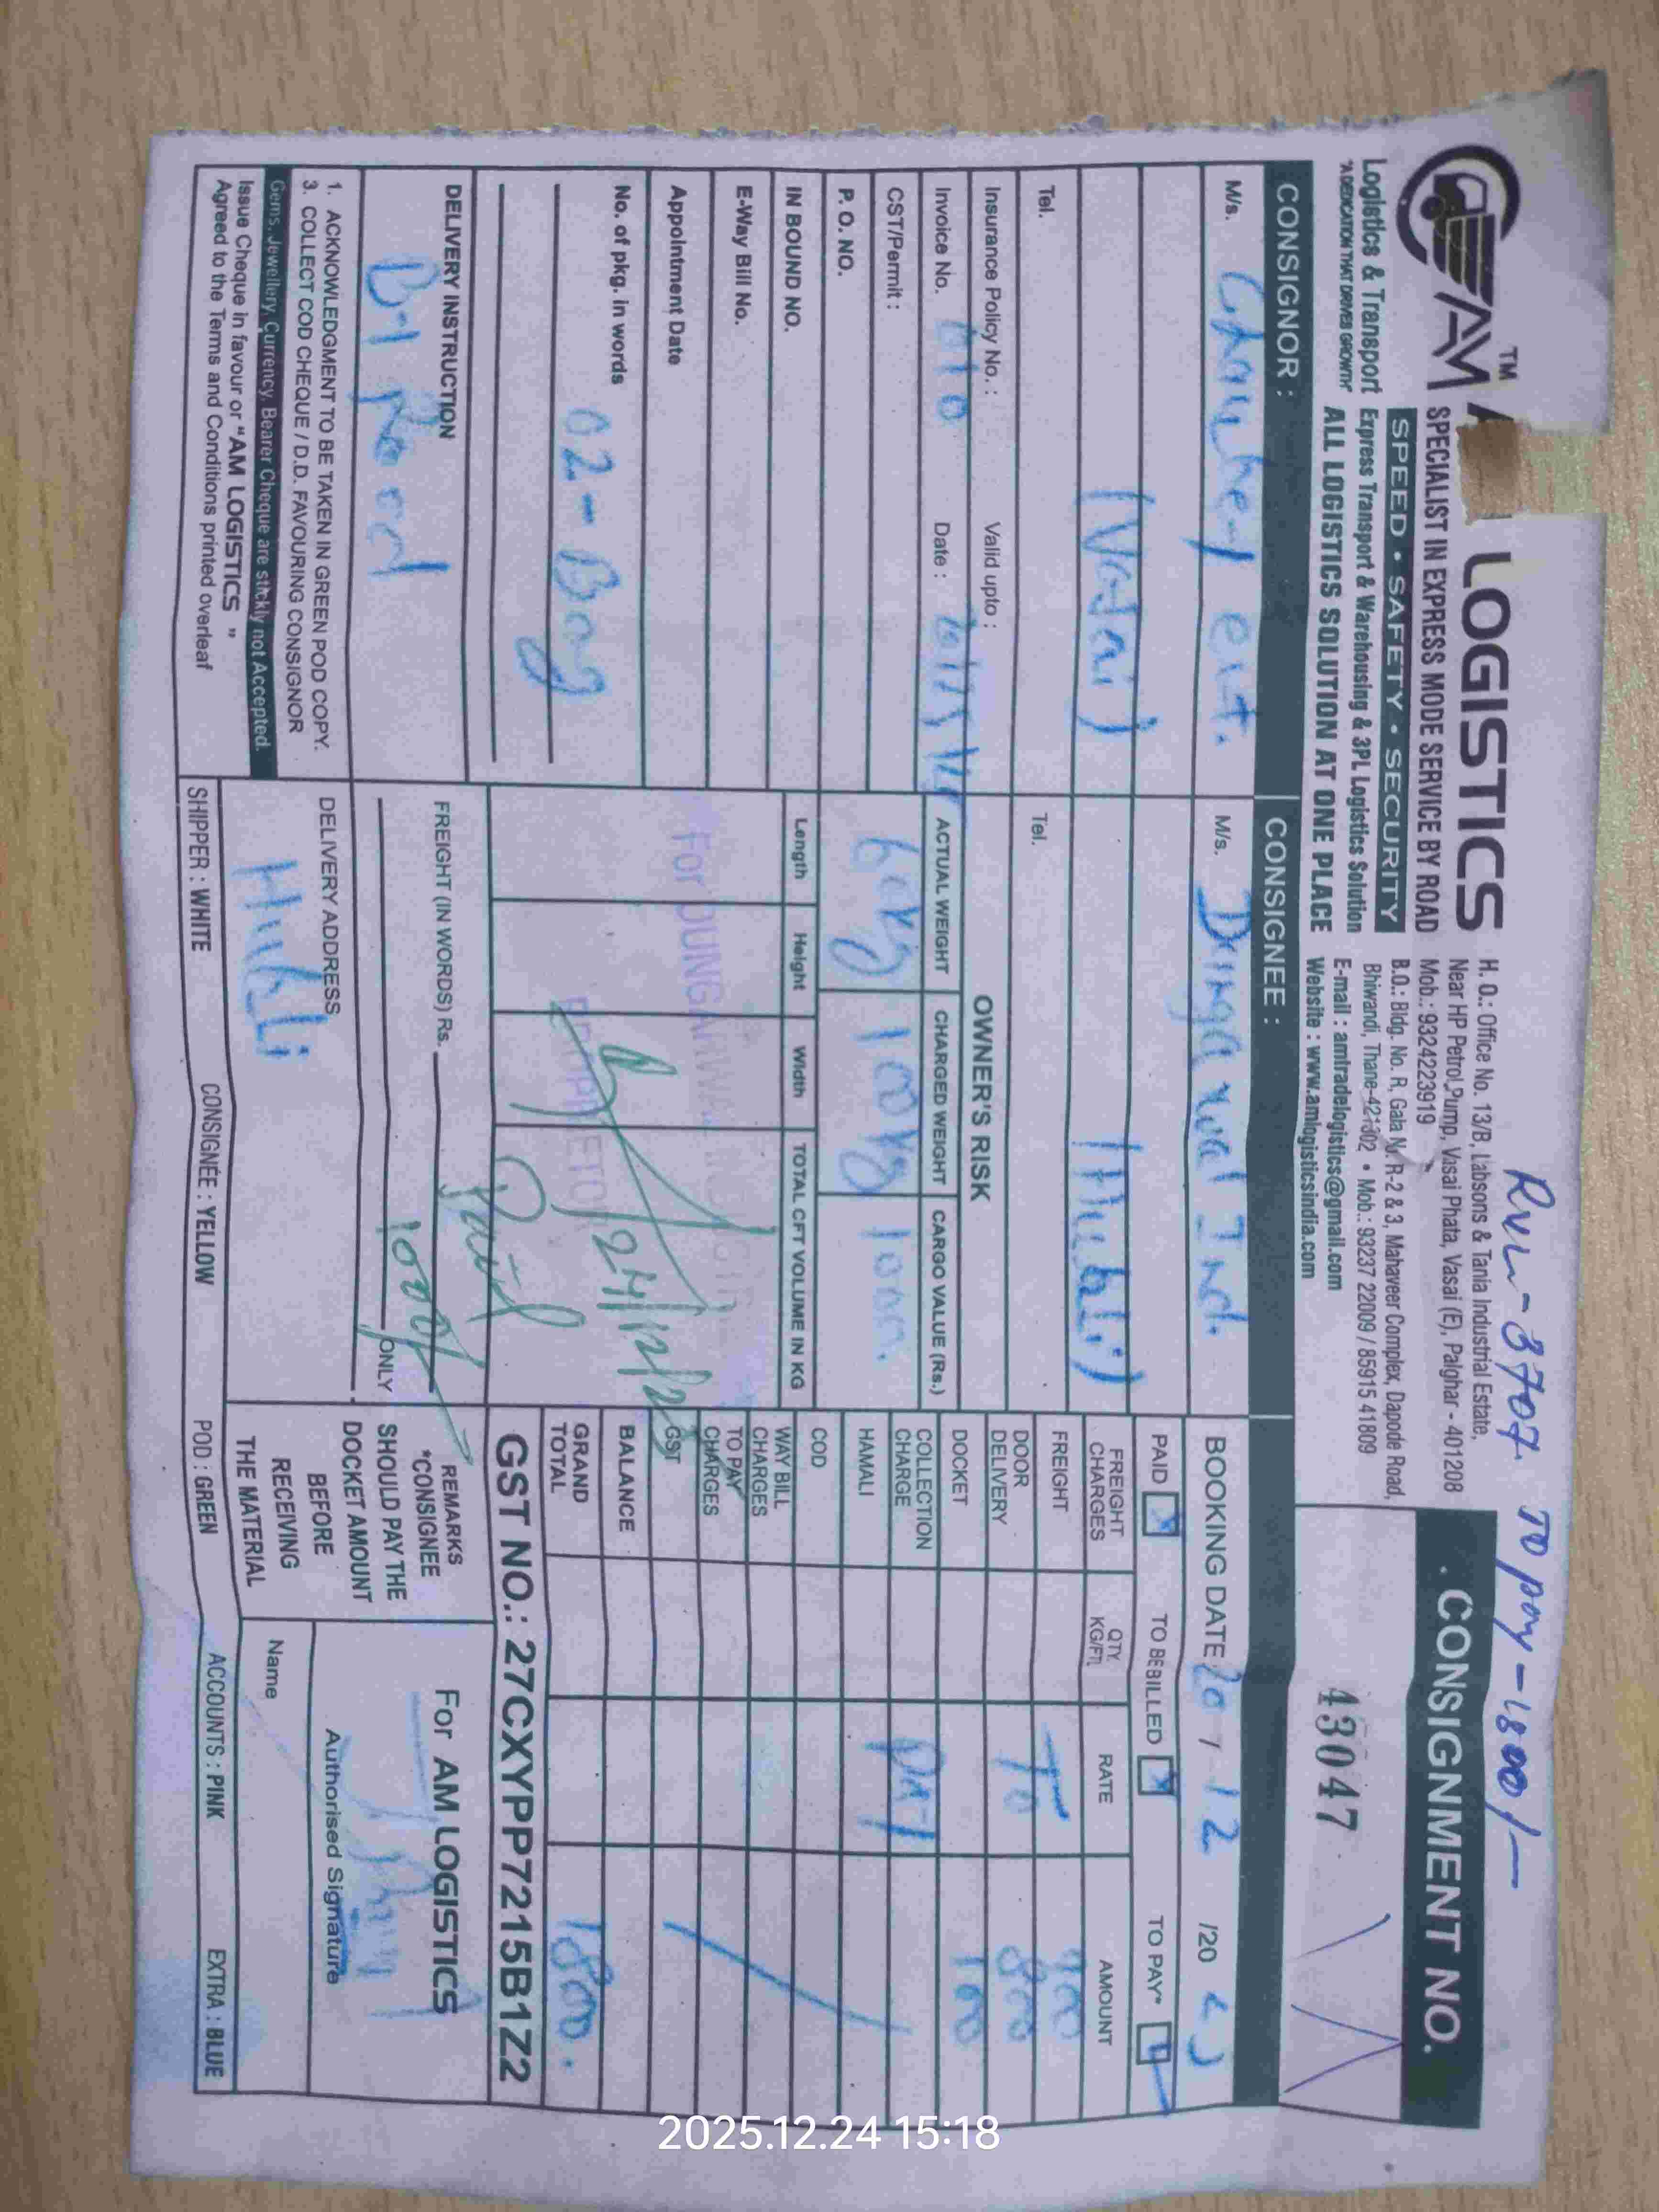 Run-3707. TO pay-1800/-
AM
TM
LOGISTICS
Logistics & Transport
"A DEDICATION THAT DRIVES GROWTH"
SPECIALIST IN EXPRESS MODE SERVICE BY ROAD
SPEED • SAFETY • SECURITY
Express Transport & Warehousing & 3PL Logistics Solution
ALL LOGISTICS SOLUTION AT ONE PLACE
H. O.: Office No. 13/B, Labsons & Tania Industrial Estate,
Near HP Petrol Pump, Vasai Phata, Vasai (E), Palghar - 401208
Mob.: 9324223919
B.O.: Bldg. No. R, Gala N. R-2 & 3, Mahaveer Complex, Dapode Road,
Bhiwandi, Thane-421302 • Mob.: 93237 22009 / 85915 41809
E-mail : amtradelogistics@gmail.com
Website : www.amlogisticsindia.com
CONSIGNMENT NO.
43047
CONSIGNOR :
M/s.
ent.
(Vasai)
Tel.
CONSIGNEE :
M/s. Dungarwal Ind.
(Hubli)
Tel.
BOOKING DATE 20 / 12 /20
PAID X TO BE BILLED X TO PAY*
FREIGHT CHARGES QTY. KG/FTL RATE AMOUNT
FREIGHT 900
DOOR DELIVERY To 800
DOCKET 100
COLLECTION CHARGE Pay
HAMALI
COD
WAY BILL CHARGES
TO PAY CHARGES
GST
BALANCE
GRAND TOTAL 1800.
Insurance Policy No. : Valid upto :
Invoice No. 010 Date :
CST/Permit :
P. O. NO.
IN BOUND NO.
E-Way Bill No.
Appointment Date
No. of pkg. in words 02-Bag
OWNER'S RISK
ACTUAL WEIGHT CHARGED WEIGHT CARGO VALUE (Rs.)
10kg
Length Height Width TOTAL CFT VOLUME IN KG
For DUNGARWAL
PROPRIETOR
24/12/25
Paid
DELIVERY INSTRUCTION
FREIGHT (IN WORDS) Rs.
ONLY
1. ACKNOWLEDGMENT TO BE TAKEN IN GREEN POD COPY.
3. COLLECT COD CHEQUE / D.D. FAVOURING CONSIGNOR
Gems, Jewellery, Currency, Bearer Cheque are stickly not Accepted.
Issue Cheque in favour or "AM LOGISTICS "
Agreed to the Terms and Conditions printed overleaf
DELIVERY ADDRESS
Hubli
GST NO.: 27CXYPP7215B1Z2
REMARKS
*CONSIGNEE
SHOULD PAY THE
DOCKET AMOUNT
BEFORE
RECEIVING
THE MATERIAL
For AM LOGISTICS
Authorised Signature
Name
SHIPPER : WHITE CONSIGNÉE : YELLOW POD : GREEN ACCOUNTS : PINK EXTRA : BLUE
2025.12.24 15:18